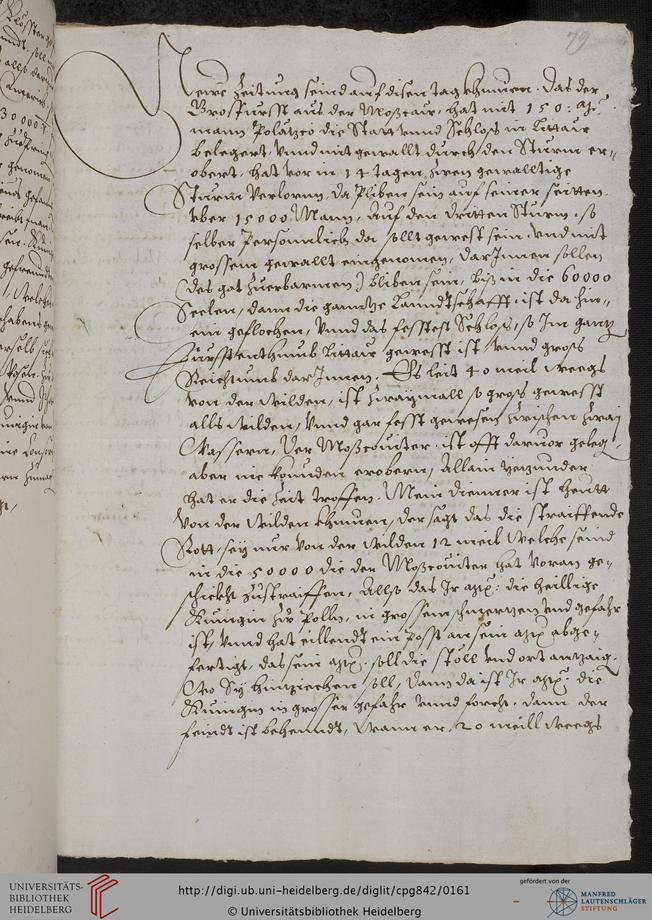 79
Newe Zeitung seind auf disen tag khumen. Das der
Grosfürsst aus der Moßcaw, hat mit 150: M.
mann Polatzco die Statt vnnd Schloß in Littaw
belegert, Vnnd mit gewallt durch den Sturm er-
obert, hat vor in 14 tagen zwen gewalltige
Sturm verlorn, Da bliben sein auf seiner seitten
vber 15000 Mann, Auf den dritten Sturm, so
selber Personnlich da sollt gewest sein, vnd mit
grossem gewallt eingenomen, Darinnen sollen
(des got zuerbarmen) bliben sein, biß in die 60000
Seelen, dann die ganntze Lanndtschafft ist da hin-
ein geflochen, Vnnd das fesstest Schloß, so Im gantz
Fürsstenthumb Littaw gewesst ist vnnd gros
Reichtumb darInnen. Es leit 40 meil weegs
von der Wilden, ist zwaymall so gros gewesst
alls Wilden, Vnnd gar fesst gewesen zwischen zwaj
Wassern, Der Moßcouiter ist offt daruor geleg-
aber nie kounden erobern, Allain yetzunder
hat er die Zeit troffen. Mein dienner ist heutt
von der Wilden khumen, der sagt das die straiffende
Rott, sey nur von der Wilden 12 meil welche seind
in die 50000 die der Moßcouiter hat voran ge-
schickht zustraiffen, Allß das Ir Mt: die heillige
Kunigin zw Polln, in grossem schmertzen vnd gefahr
ist, Vnnd hat eillendt ein Posst an sein Mt abge-
fertigt, das sein Mt: soll die stöll vnd ort antzaig.
Wo Sy hinziechen soll, Dann da ist Ir Mt: die
Kunigin in grosser gefahr vnnd forcht, dann der
feindt ist behenndt, Wann er, 20 meill weegs
UNIVERSITÄTS-
BIBLIOTHEK
HEIDELBERG
http://digi.ub.uni-heidelberg.de/diglit/cpg842/0161
© Universitätsbibliothek Heidelberg
gefördert von der
MANFRED
LAUTENSCHLÄGER
STIFTUNG